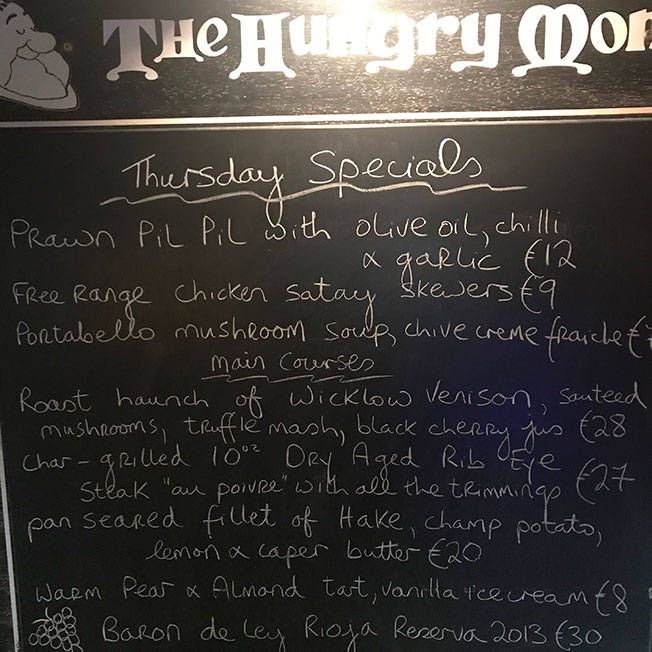 The Hungry Mon
Thursday Specials
Prawn Pil Pil with olive oil, chilli
& garlic €12
Free Range chicken satay skewers €9
Portabello mushroom soup, chive creme fraiche €
main courses
Roast haunch of Wicklow Venison, sauteed
mushrooms, truffle mash, black cherry jus €28
Char-grilled 10oz Dry Aged Rib Eye
Steak "au poivre" with all the trimmings €27
pan seared fillet of Hake, champ potato,
lemon & caper butter €20
Warm Pear & Almond tart, vanilla ice cream €8
Baron de Ley Rioja Reserva 2013 €30